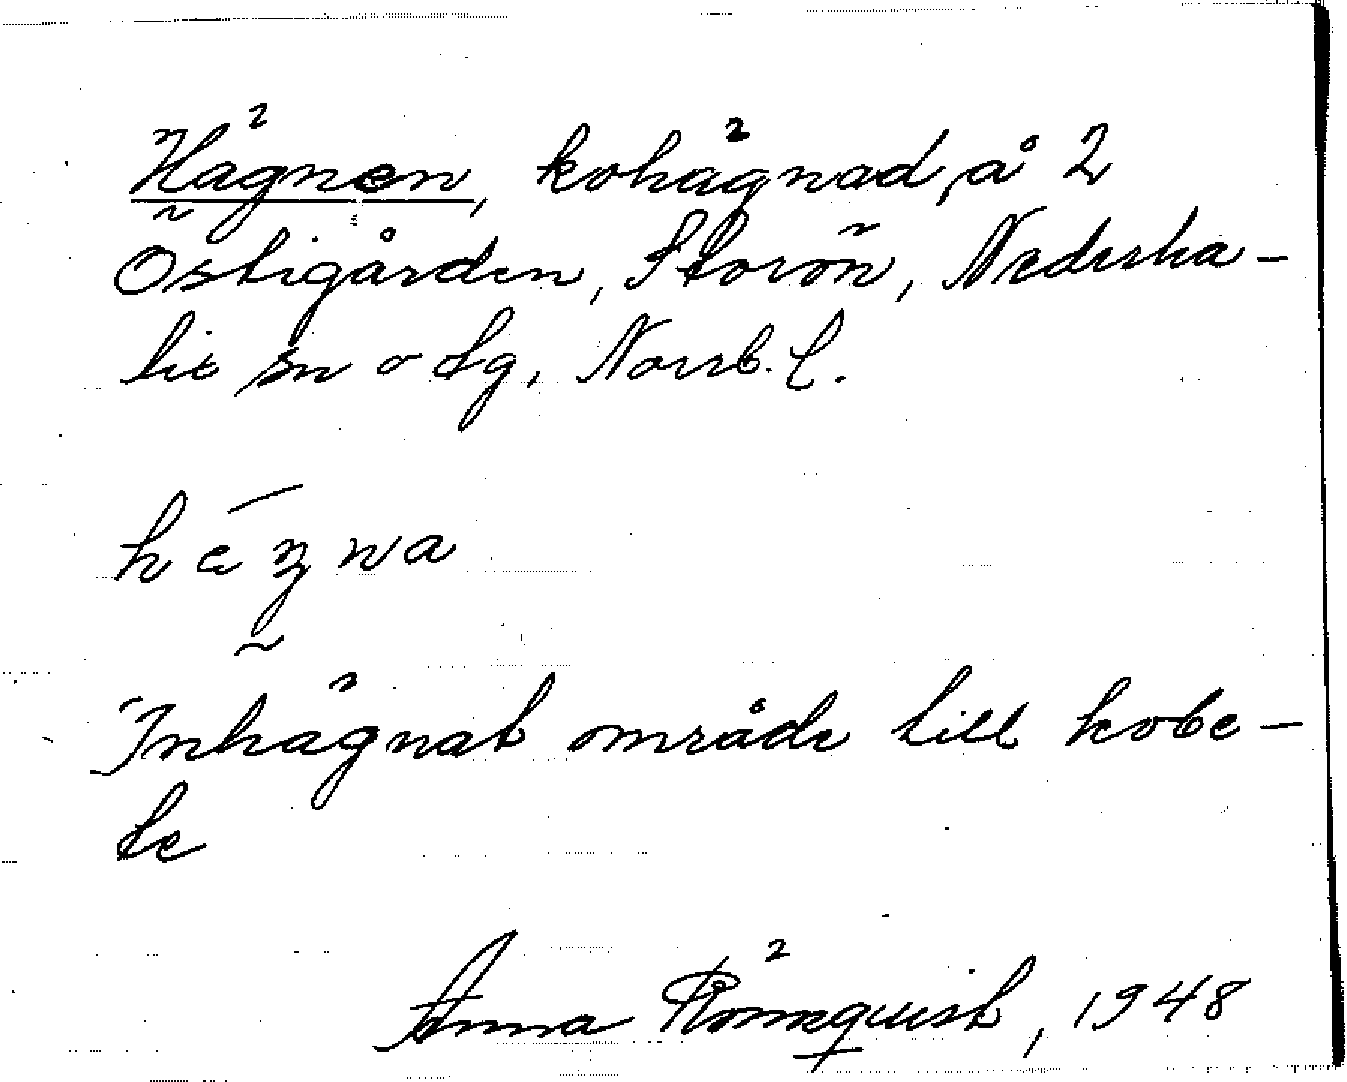 Hägnen, kohägnad, å 2
Östigården, Storön, Nederka-
lix sn o tg, Norrb. l.
Inhägnat område till kobe-
te
Anna Rönnquist, 1948